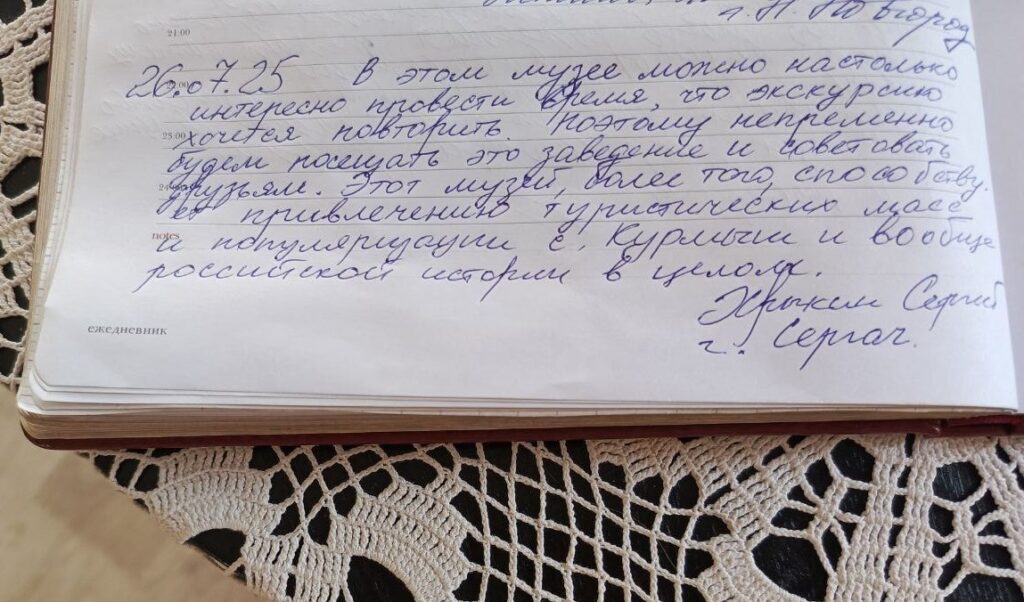 21:00
г. Н. Новгород
26.07.25 В этом музее можно настолько
интересно провести время, что экскурсию
23:00
хочется повторить. Поэтому непременно
будем посещать это заведение и советовать
друзьям. Этот музей, более того, способству-
ет привлечению туристических масс
notes
и популяризации с. Курмыш и вообще
российской истории в целом.
Сергей
г. Сергач.
ежедневник